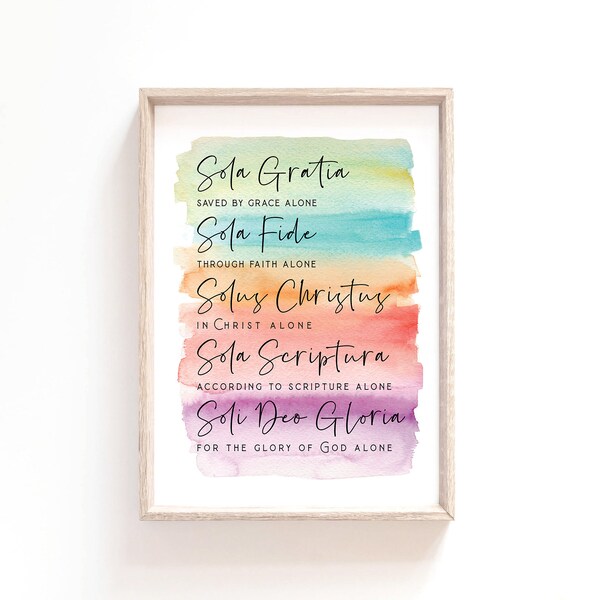 Sola Gratia
SAVED BY GRACE ALONE
Sola Fide
THROUGH FAITH ALONE
Solus Christus
IN CHRIST ALONE
Sola Scriptura
ACCORDING TO SCRIPTURE ALONE
Soli Deo Gloria
FOR THE GLORY OF GOD ALONE